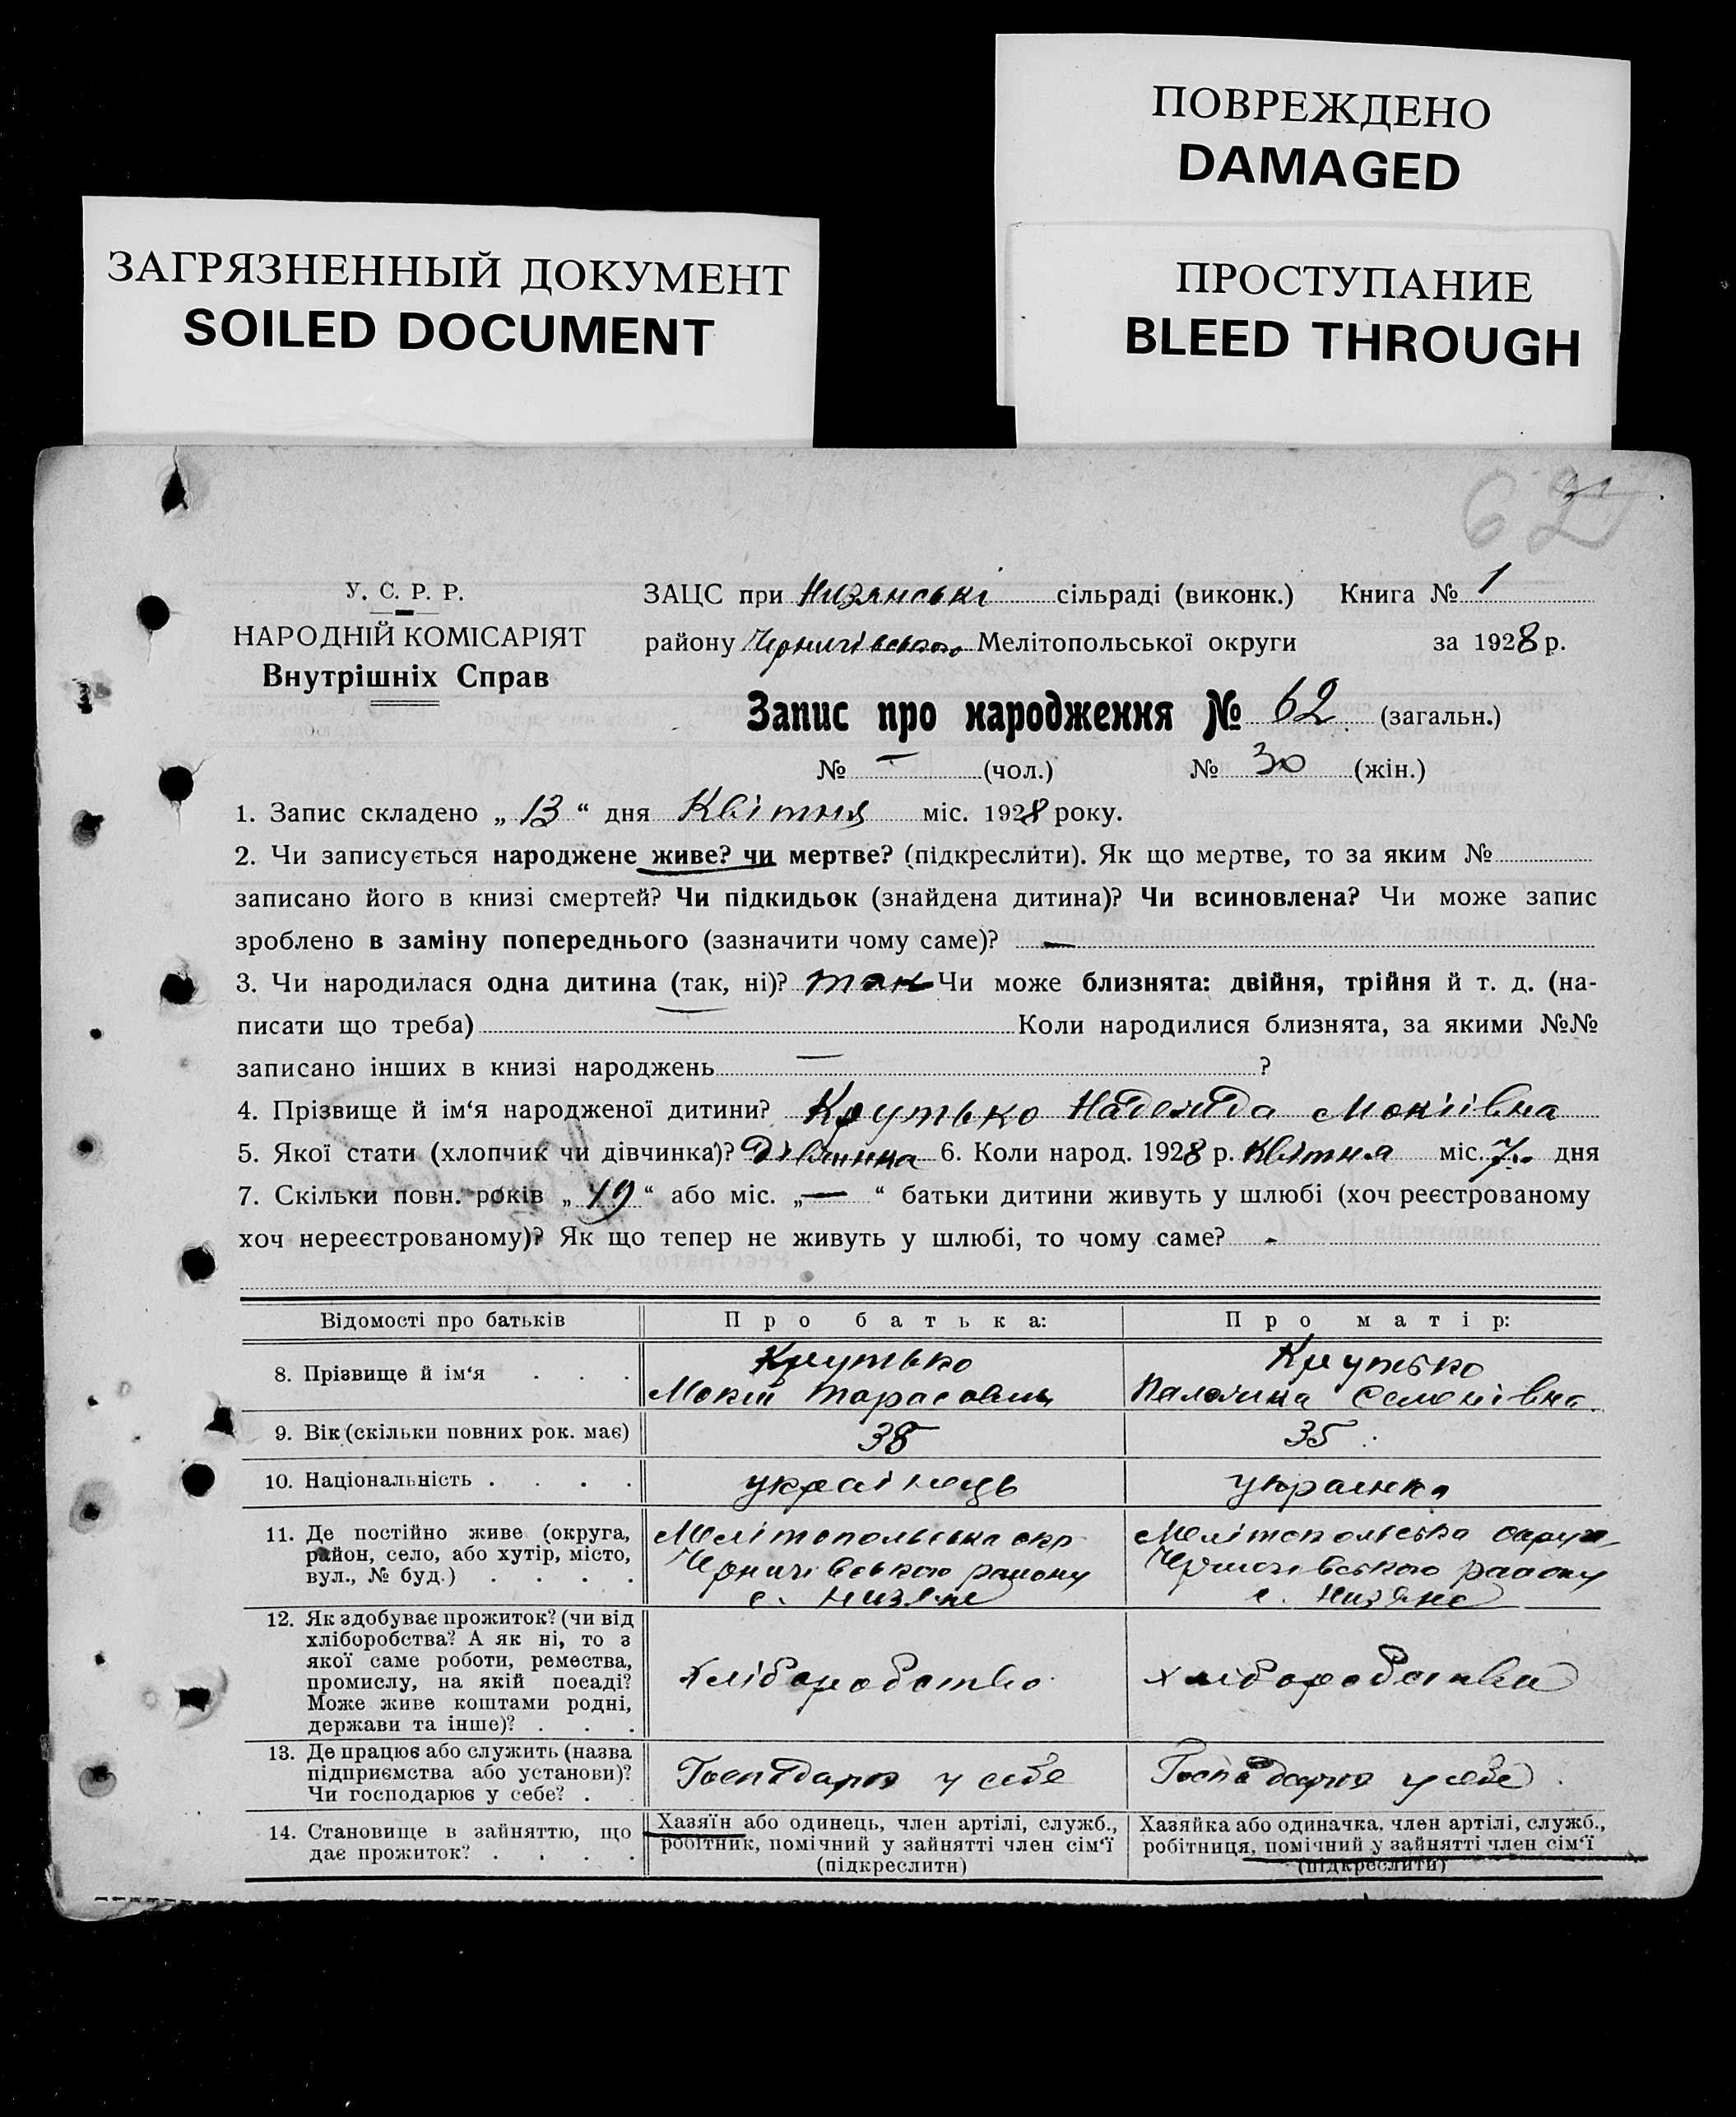 ПОВРЕЖДЕНО
DAMAGED
ЗАГРЯЗНЕННЫЙ ДОКУМЕНТ
SOILED DOCUMENT
ПРОСТУПАНИЕ
BLEED THROUGH
62
У. С. Р. Р.
НАРОДНІЙ КОМІСАРІЯТ
Внутрішніх Справ
ЗАЦС при Низянській сільраді (виконк.) Книга № 1
району Чернигівського Мелітопольської округи за 1928 р.
Запис про народження № 62 (загальн.)
№ — (чол.) № 30 (жін.)
1. Запис складено „ 13 “ дня Квітня міс. 1928 року.
2. Чи записується народжене живе? чи мертве? (підкреслити). Як що мертве, то за яким №
записано його в книзі смертей? Чи підкидьок (знайдена дитина)? Чи всиновлена? Чи може запис
зроблено в заміну попереднього (зазначити чому саме)? —
3. Чи народилася одна дитина (так, ні)? так Чи може близнята: двійня, трійня й т. д. (на-
писати що треба) — Коли народилися близнята, за якими №№
записано інших в книзі народжень — ?
4. Прізвище й ім‘я народженої дитини? Крутько Надежда Мокіівна
5. Якої стати (хлопчик чи дівчинка)? Дівчинка 6. Коли народ. 1928 р. Квітня міс. 7 дня
7. Скільки повн. років „ 19 “ або міс. „ — “ батьки дитини живуть у шлюбі (хоч реєстрованому
хоч нереєстрованому)? Як що тепер не живуть у шлюбі, то чому саме? -
Відомості про батьків Про батька: Про матір:
8. Прізвище й ім‘я . . . Крутько Мокій Тарасович Крутько Семенівна
9. Вік (скільки повних рок. має) 38 35
10. Національність . . . . українець українка
11. Де постійно живе (округа, район, село, або хутір, місто, вул., № буд.) . . . . Мелітопольська окр Чернигівського району с. Низяне Мелітопольська округа Чернигівського району с. Низяне
12. Як здобуває прожиток? (чи від хліборобства? А як ні, то з якої саме роботи, ремества, промислу, на якій посаді? Може живе коштами родні, держави та інше)? . . . Хліборобство хліборобство
13. Де працює або служить (назва підприємства або установи)? Чи господарює у себе? . . Господарює у себе Господарює у себе
14. Становище в зайняттю, що дає прожиток? . . . . Хазяїн або одинець, член артілі, служб., робітник, помічний у зайнятті член сім‘ї (підкреслити) Хазяйка або одиначка, член артілі, служб., робітниця, помічний у зайнятті член сім‘ї (підкреслити)